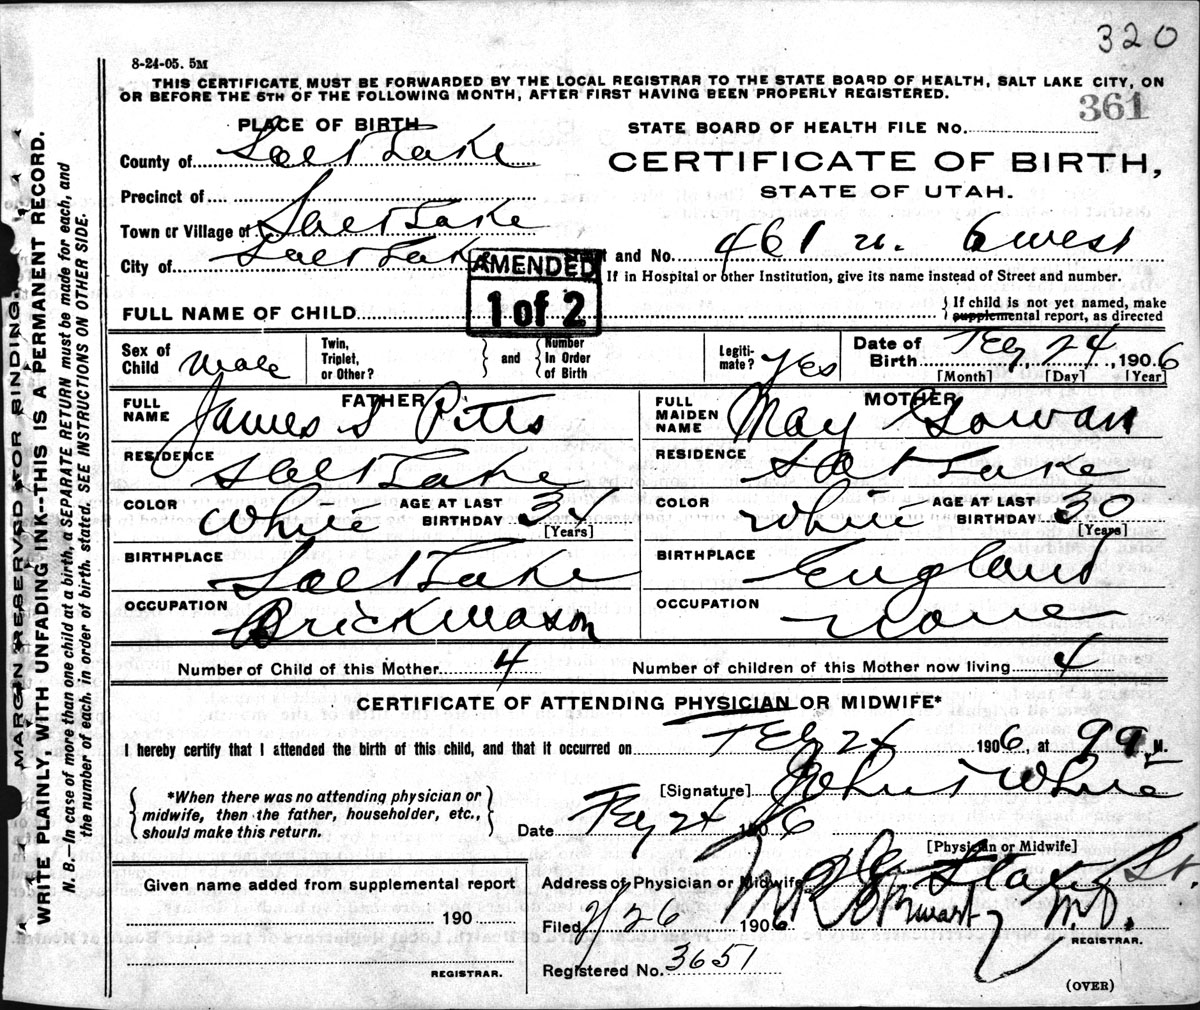 320
8-24-05. 5M
THIS CERTIFICATE MUST BE FORWARDED BY THE LOCAL REGISTRAR TO THE STATE BOARD OF HEALTH, SALT LAKE CITY, ON
OR BEFORE THE 5TH OF THE FOLLOWING MONTH, AFTER FIRST HAVING BEEN PROPERLY REGISTERED.
361
PLACE OF BIRTH
STATE BOARD OF HEALTH FILE No.
County of Salt Lake
CERTIFICATE OF BIRTH,
Precinct of
STATE OF UTAH.
Town or Village of Salt Lake
City of Salt Lake
AMENDED
1 of 2
t and No. 461 n. 6 west
If in Hospital or other Institution, give its name instead of Street and number.
FULL NAME OF CHILD
{ If child is not yet named, make
supplemental report, as directed
Sex of Child Male
Twin, Triplet, or Other?
{ and }
Number In Order of Birth
Legiti-mate? Yes
Date of Birth Feby 24, 1906
[Month] [Day] [Year]
FATHER
MOTHER
FULL NAME James S Pitts
FULL MAIDEN NAME May Gowan
RESIDENCE Salt Lake
RESIDENCE Salt Lake
COLOR White AGE AT LAST BIRTHDAY 34 [Years]
COLOR White AGE AT LAST BIRTHDAY 30 [Years]
BIRTHPLACE Salt Lake
BIRTHPLACE England
OCCUPATION Brick Mason
OCCUPATION None
Number of Child of this Mother 4
Number of children of this Mother now living 4
CERTIFICATE OF ATTENDING PHYSICIAN OR MIDWIFE*
I hereby certify that I attended the birth of this child, and that it occurred on Feby 24 1906, at 9 a. M.
*When there was no attending physician or
midwife, then the father, householder, etc.,
should make this return.
[Signature] John S White
Date Feby 24 1906
[Physician or Midwife]
Given name added from supplemental report
190
REGISTRAR.
Address of Physician or Midwife
Filed 2/26 1906 M.D.
REGISTRAR.
Registered No. 3651
(OVER)
MARGIN RESERVED FOR BINDING.
WRITE PLAINLY, WITH UNFADING INK--THIS IS A PERMANENT RECORD.
N. B.—In case of more than one child at a birth, a SEPARATE RETURN must be made for each, and
the number of each, in order of birth, stated. SEE INSTRUCTIONS ON OTHER SIDE.